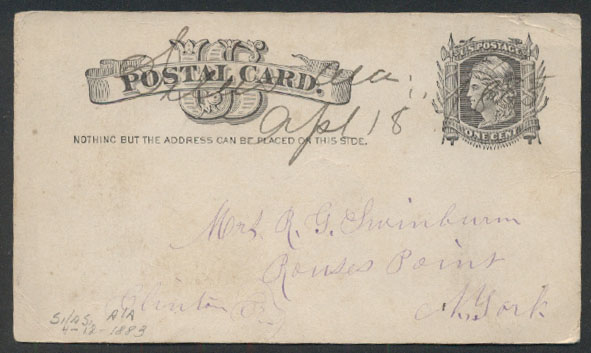 U.S. POSTAGE
US
POSTAL CARD.
Silas Ala.
Apl 18
ONE CENT
NOTHING BUT THE ADDRESS CAN BE PLACED ON THIS SIDE.
Mrs. R. G. Swinburn
Rouses Point
Clinton Co N. York
SilAS, AlA
4-18-1883